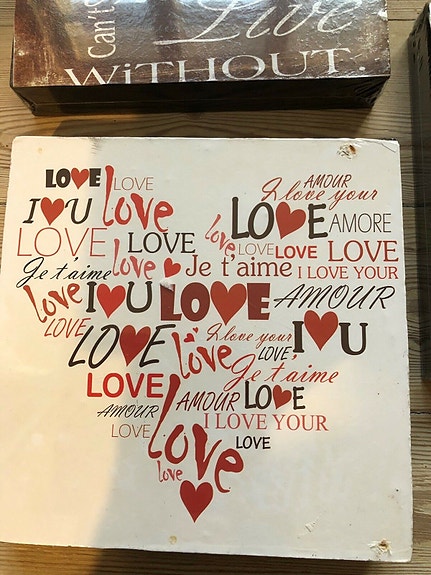 Can't
Live
WITHOUT.
LOVE LOVE
AMOUR
I love your
I❤U love
LOVE AMORE
LOVE LOVE love LOVE LOVE LOVE
Je t'aime love ❤ Je t'aime I LOVE YOUR
love I❤U LOVE AMOUR
LOVE LOVE I love your I❤U
love LOVE
Je t'aime
LOVE
AMOUR LOVE
AMOUR I LOVE YOUR
LOVE love LOVE
love